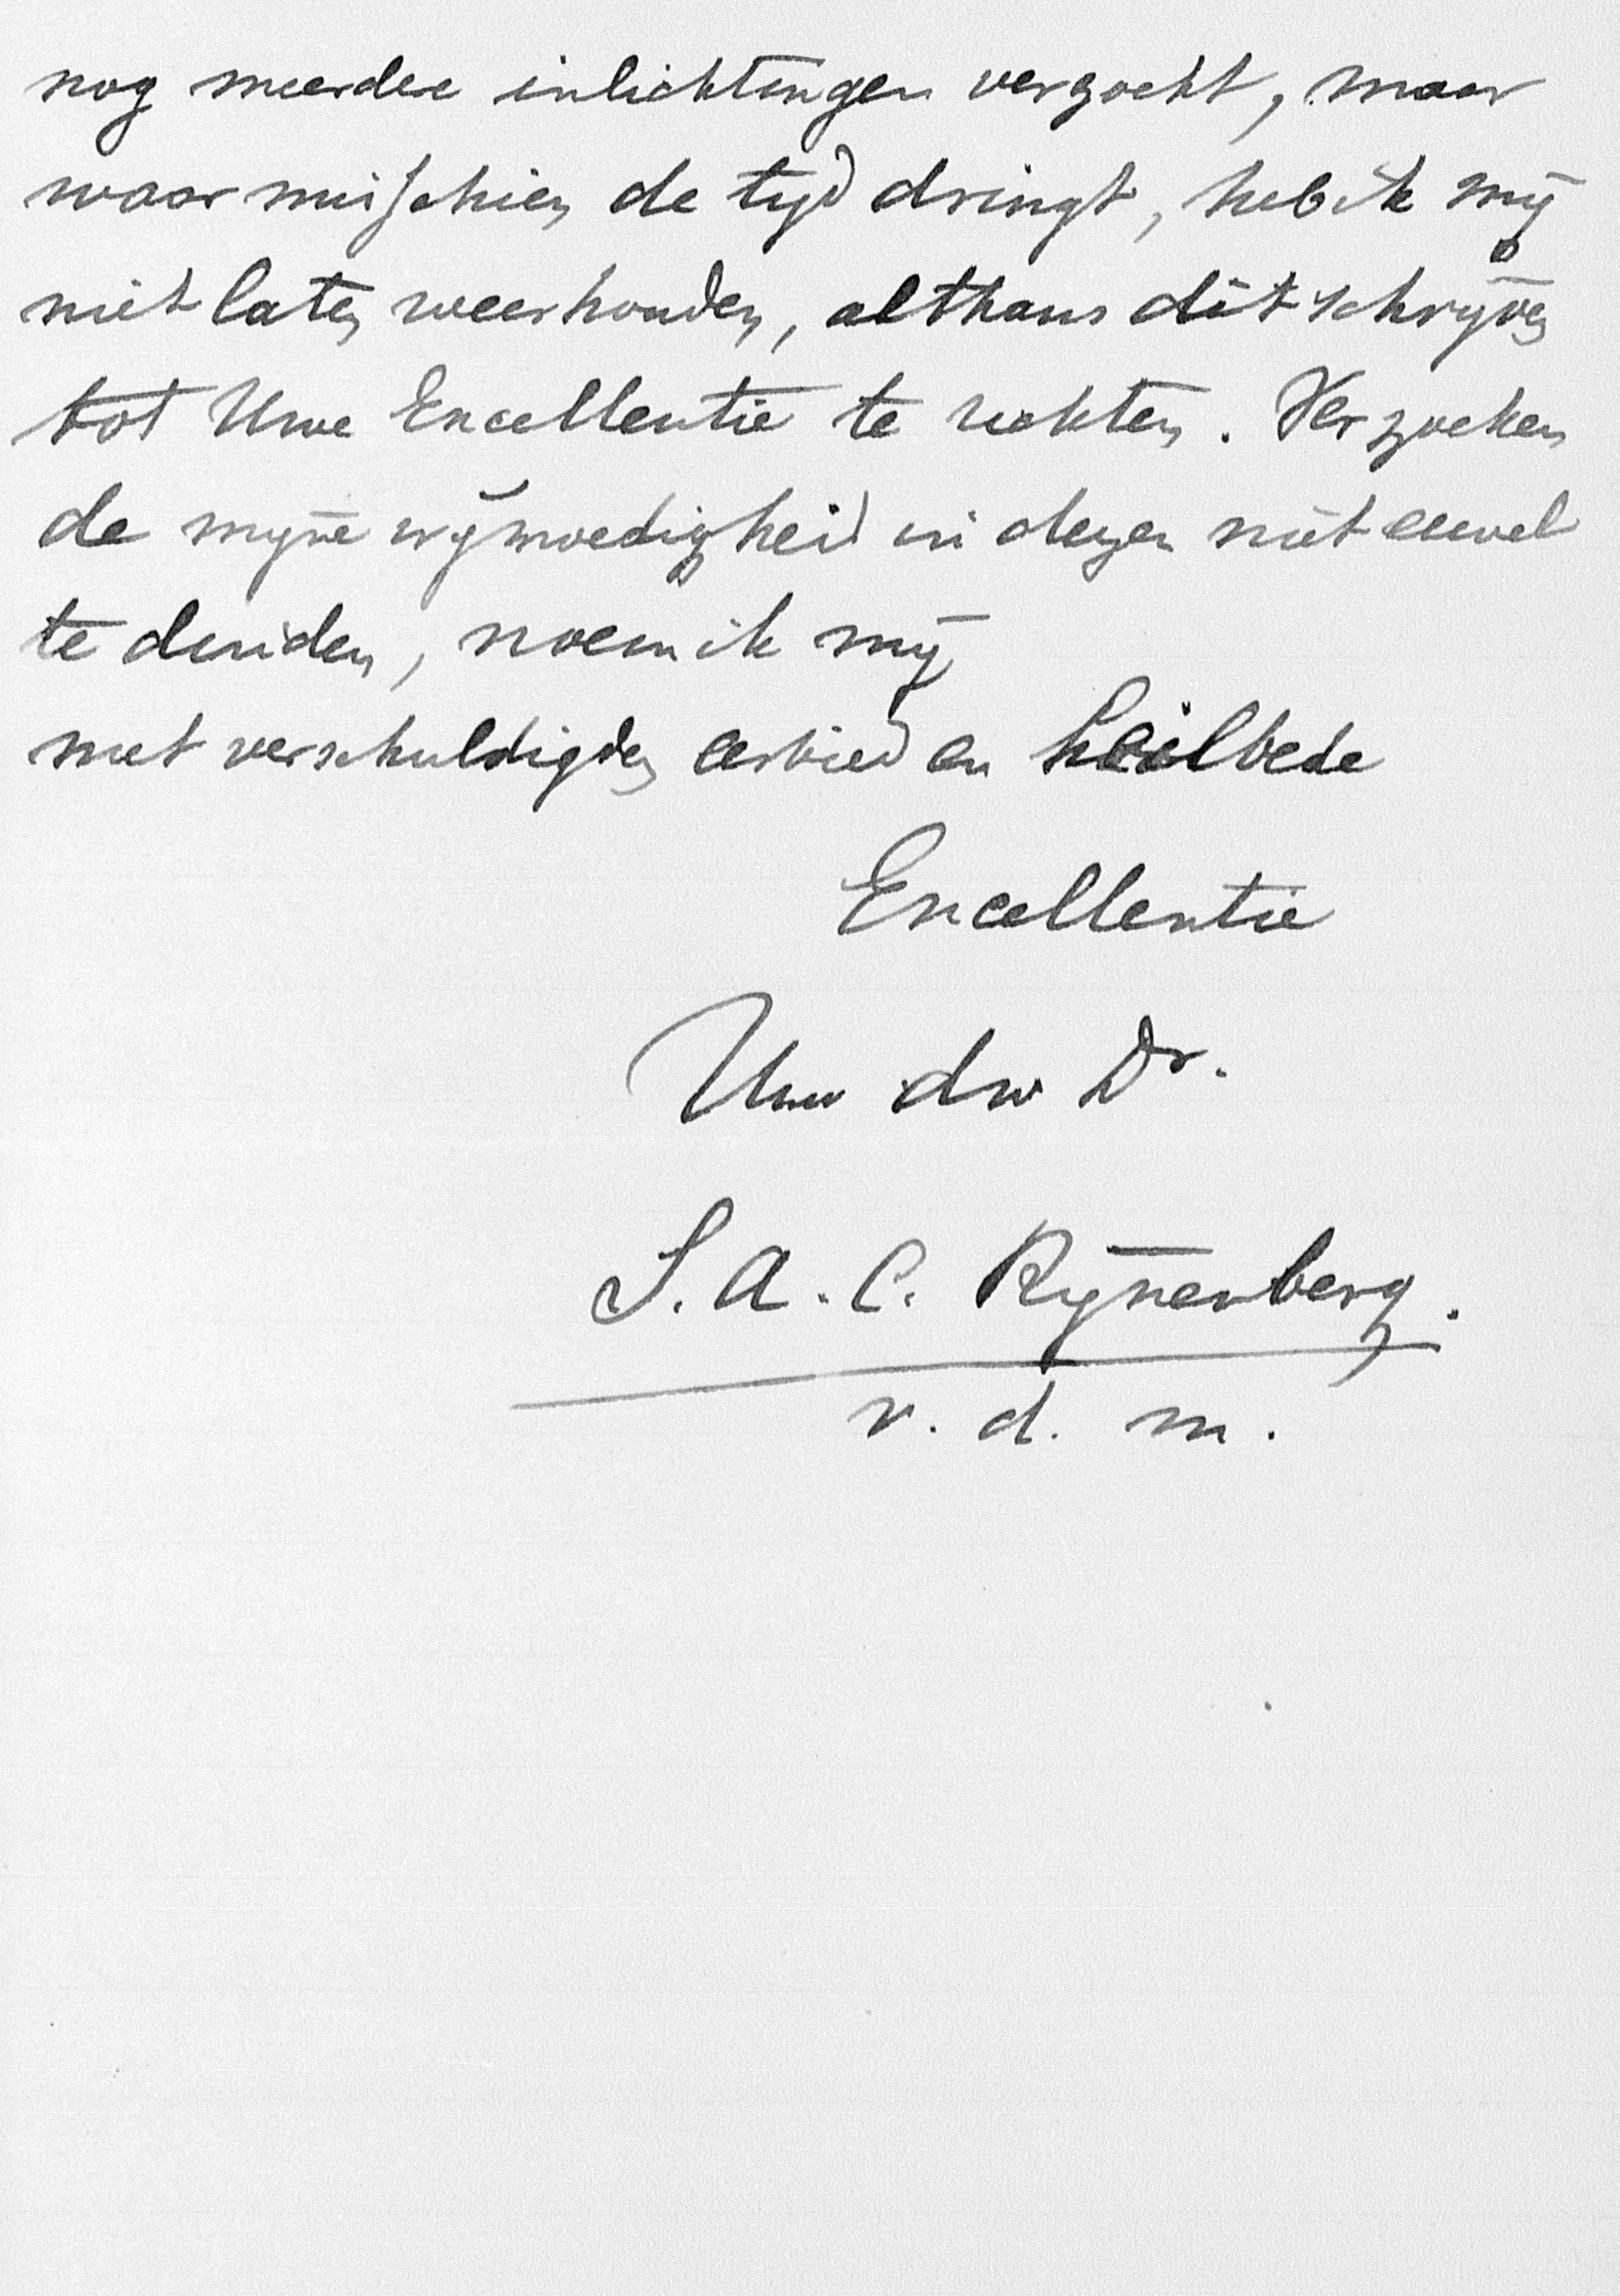 nog meerdere inlichtingen verzocht, maar
waar misschien de tijd dringt, heb ik mij
niet laten weerhouden, althans dit schrijven
tot Uwe Excellentie te richten. Verzoeken
de mijne vrijmoedigheid in dezen niet euvel
te duiden, noem ik mij
met verschuldigden eerbied en heilbede
Excellentie
Uw dw Dr.
S. A. C. Rijnenberg.
v. d. m.